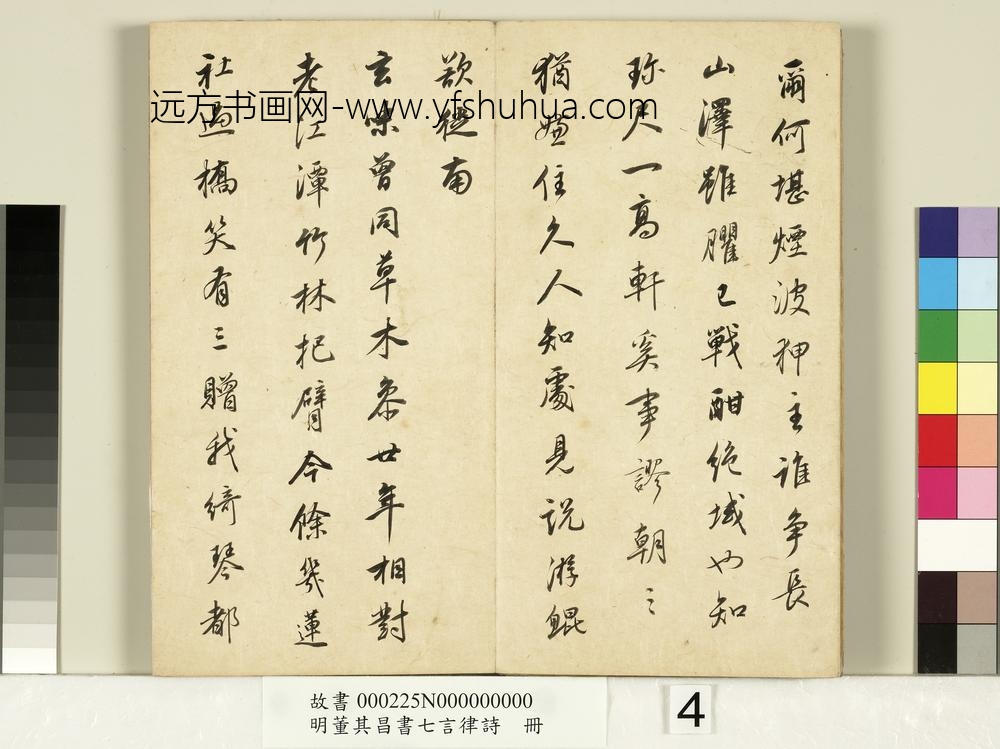 爾何堪煙波狎主誰争長
山澤雖臞已戰酣絶域也知
珎尺一高軒奚事謬朝〻
猶嫌住久人知處見説游鯤
欲徙南
玄曾同草木參廿年相對
老江潭竹林把臂今餘幾蓮
社過橋笑有三贈我綺琴都
远方书画网-www.yfshuhua.com
故書 000225N000000000
明董其昌書七言律詩 冊
4